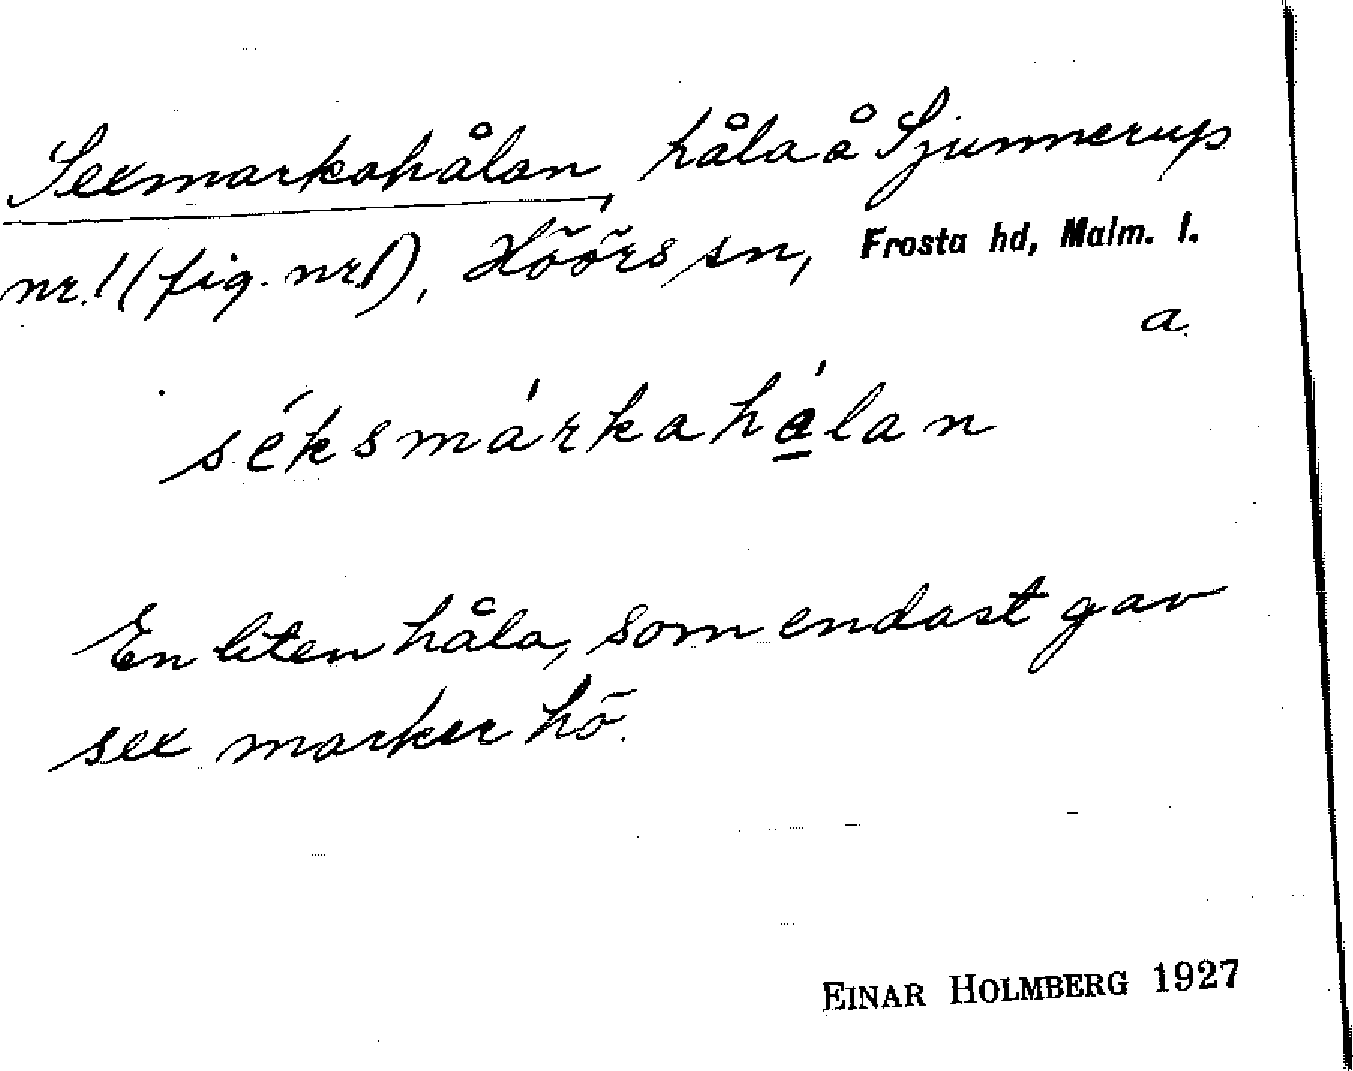 Sexmarkahålan, håla å Sjunnerup
nr. 1 (fig. nr 1), Höörs sn, Frosta hd, Malm. l.
a.
séksmárkahálan
En liten håla, som endast gav
sex marker hö.
EINAR HOLMBERG 1927